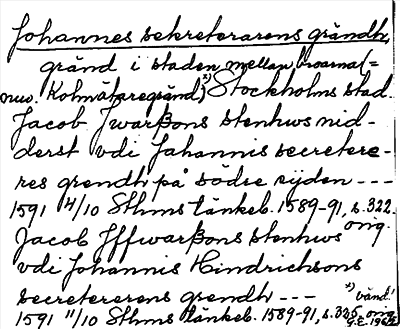 Johannes sekreterarens grändh,
gränd i staden mellan broarna (=
nuv. Kolmätaregränd)ˣ⁾ Stockholms stad.
Jacob Jwarßons stenhws nid-
derst vdi Johannis secretere-
res grendh på södre sijden ---
1591 4/10 Sthms tänkeb. 1589-91, s. 322.
orig.
Jacob Jffwarßons stenhws
vdi Johannis Hindrichsons
secreterarens grendh ---
ˣ⁾ vänd!
1591 11/10 Sthms tänkeb. 1589-91, s. 325, orig.